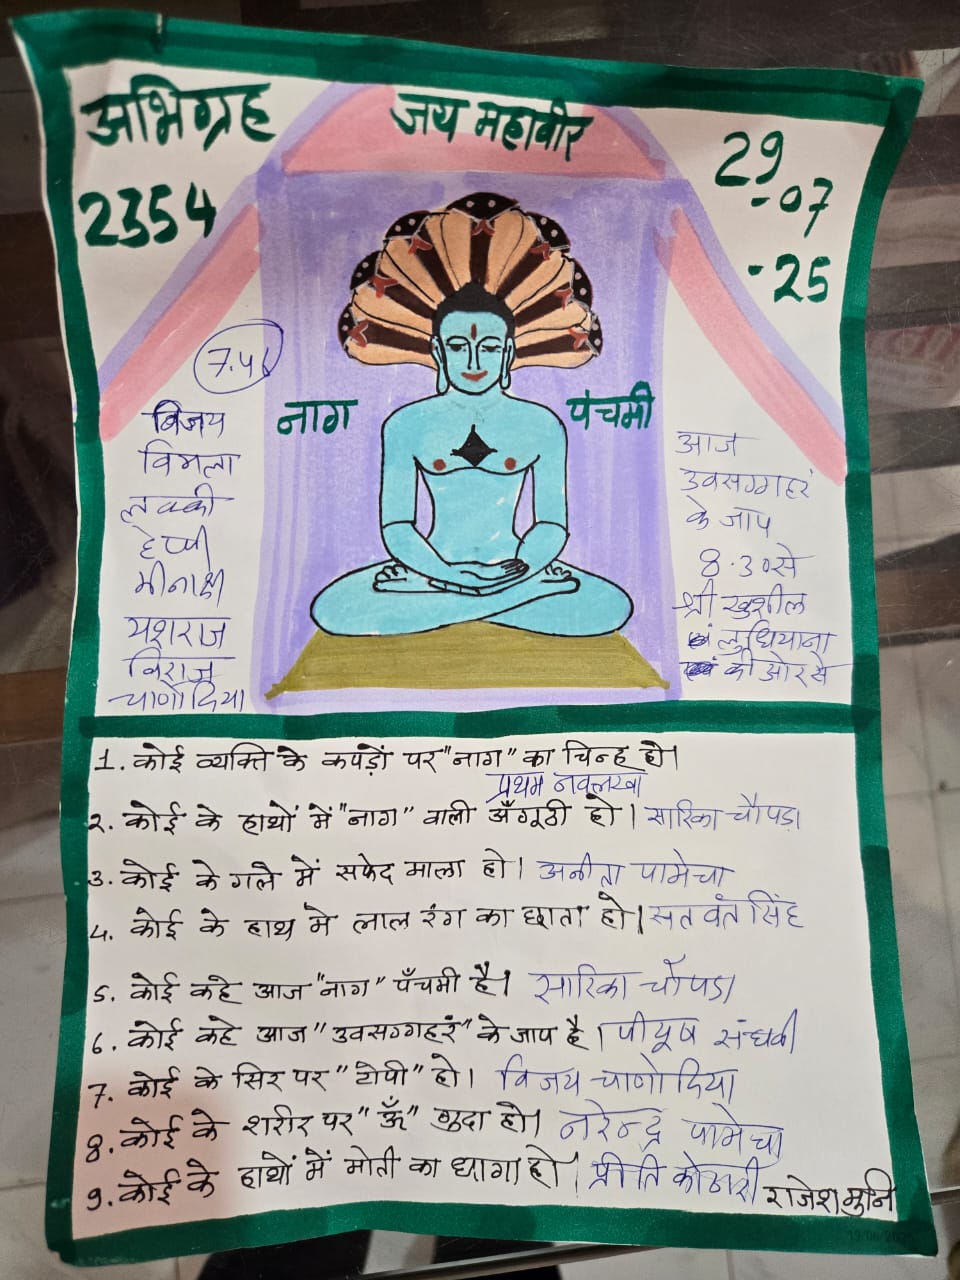 अभिग्रह
2354
जय महावीर
29
-07
-25
7.41
नाग
पंचमी
विजय
विमला
लक्की
हेप्पी
मीनाक्षी
यशराज
विराज
चाणोदिया
आज
उवसग्गहरं
के जाप
8.30 से
श्री खुशील
लुधियाना
की ओर से
1. कोई व्यक्ति के कपड़ों पर "नाग" का चिन्ह हो।
प्रथम नवलखा
2. कोई के हाथों में "नाग" वाली अँगूठी हो। सारिका चौपड़ा
3. कोई के गले में सफेद माला हो। अनीता पामेचा
4. कोई के हाथ मे लाल रंग का छाता हो। सतवंत सिंह
5. कोई कहे आज "नाग" पँचमी है। सारिका चौपडा
6. कोई कहे आज "उवसग्गहरं" के जाप है। पीयूष संघवी
7. कोई के सिर पर "टोपी" हो। विजय चाणोदिया
8. कोई के शरीर पर "ॐ" गुदा हो। नरेन्द्र पामेचा
9. कोई के हाथों में मोती का धागा हो। प्रीति कोठारी राजेश मुनि